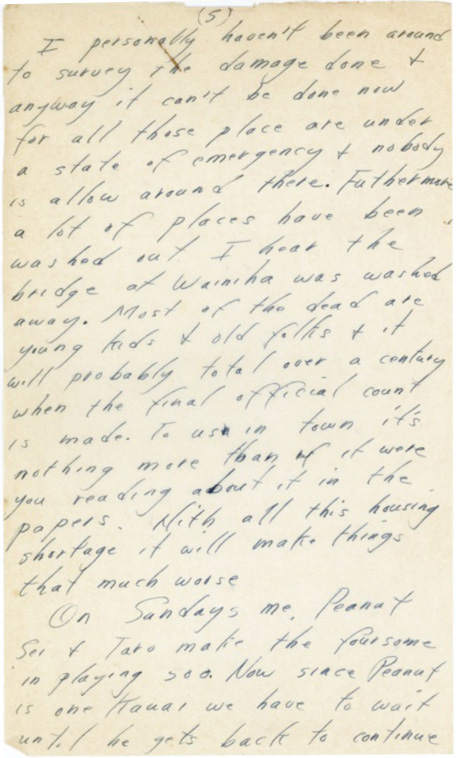 (5)
I personally haven't been around
to survey the damage done &
anyway it can't be done now
for all those place are under
a state of emergency & nobody
is allow around there. Futhermore
a lot of places have been
washed out I hear the
bridge at Wainiha was washed
away. Most of the dead are
young kids & old folks & it
will probably total over a century
when the final official count
is made. To us in town it's
nothing more than if it were
you reading about it in the
papers. With all this housing
shortage it will make things
that much worse
On Sundays me, Peanut
Sei & Taro make the foursome
in playing 500. Now since Peanut
is one Kauai we have to wait
until he gets back to continue